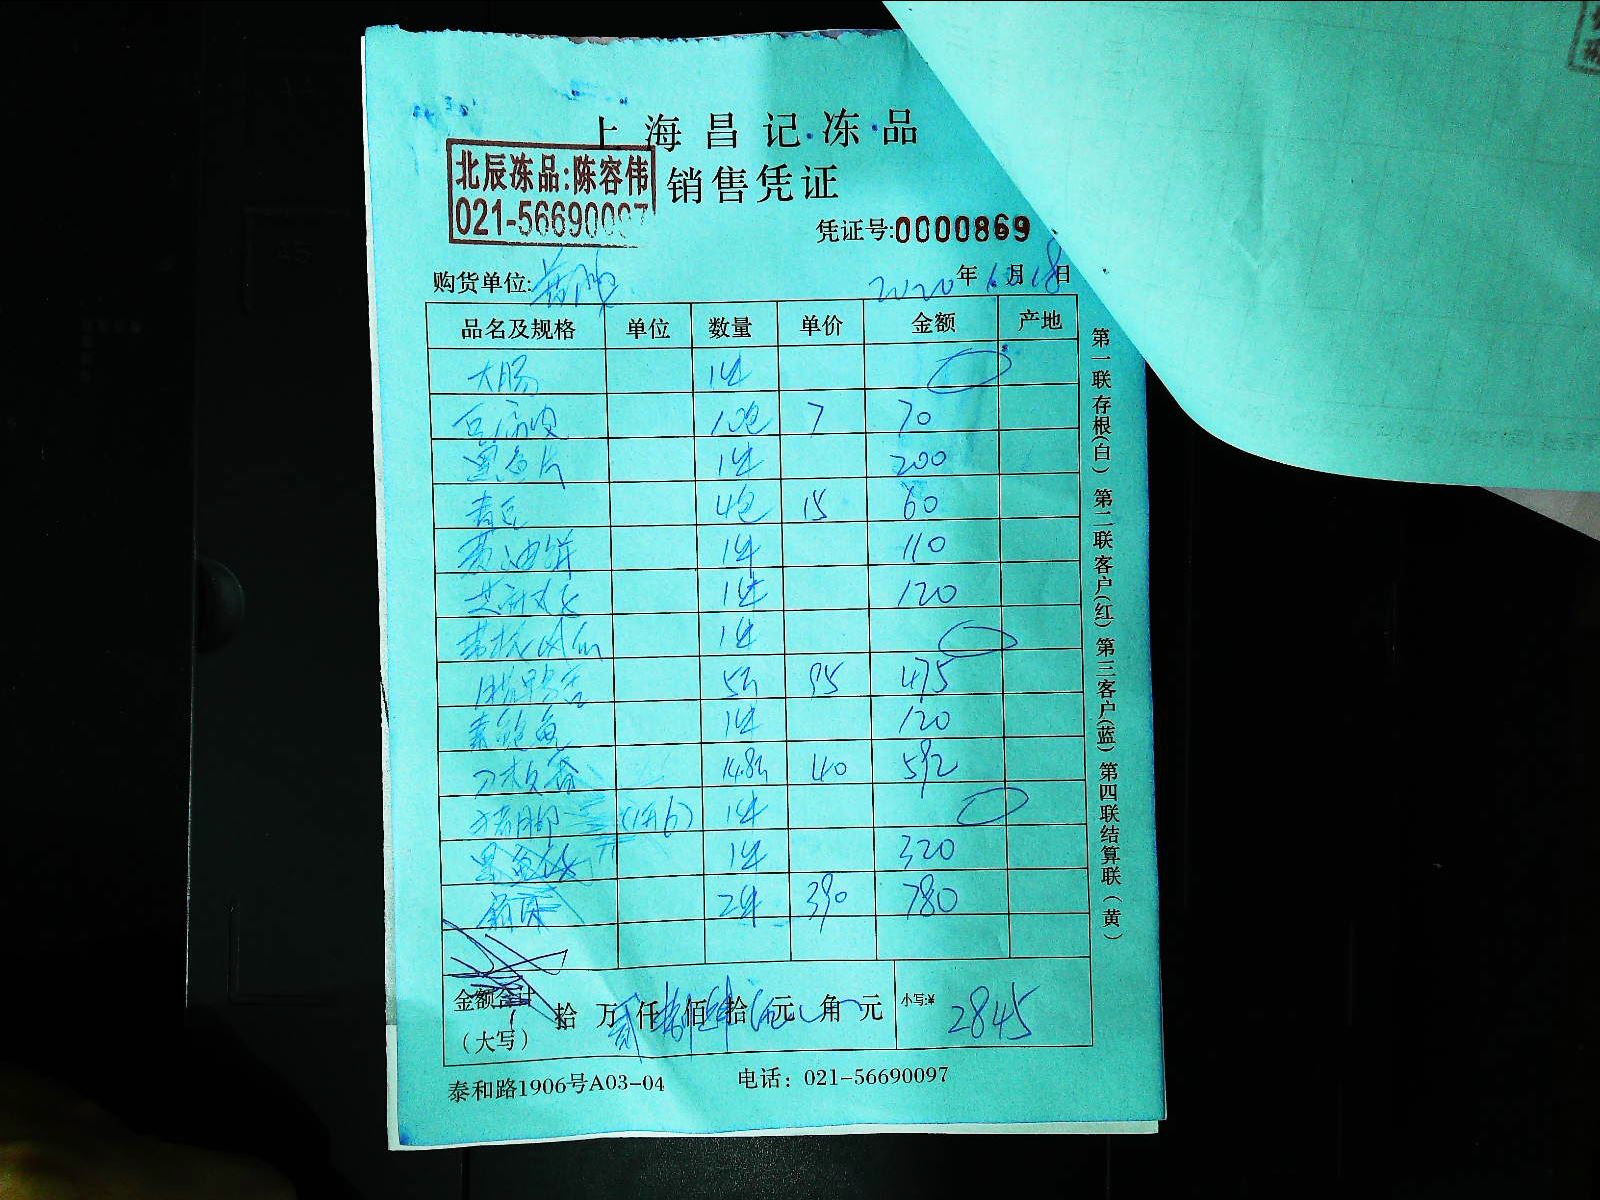 上海昌记·冻·品
北辰冻品:陈容伟
021-56690097
销售凭证
凭证号:0000869
购货单位:
2020年6月18日
品名及规格 单位 数量 单价 金额 产地
大肠 1件
豆腐皮 10包 7 70
黑鱼片 1件 200
青豆 4包 15 60
葱油饼 1件 110
1件 120
1件
5斤 95 475
素鲍鱼 1件 120
14.8斤 40 592
猪脚 1件
1件 320
2件 390 780
金额合计
(大写) 拾 万 仟 佰 拾 元 角 元 小写:¥ 2845
泰和路1906号A03-04 电话: 021-56690097
第一联存根(白) 第二联客户(红) 第三客户(蓝) 第四联结算联(黄)